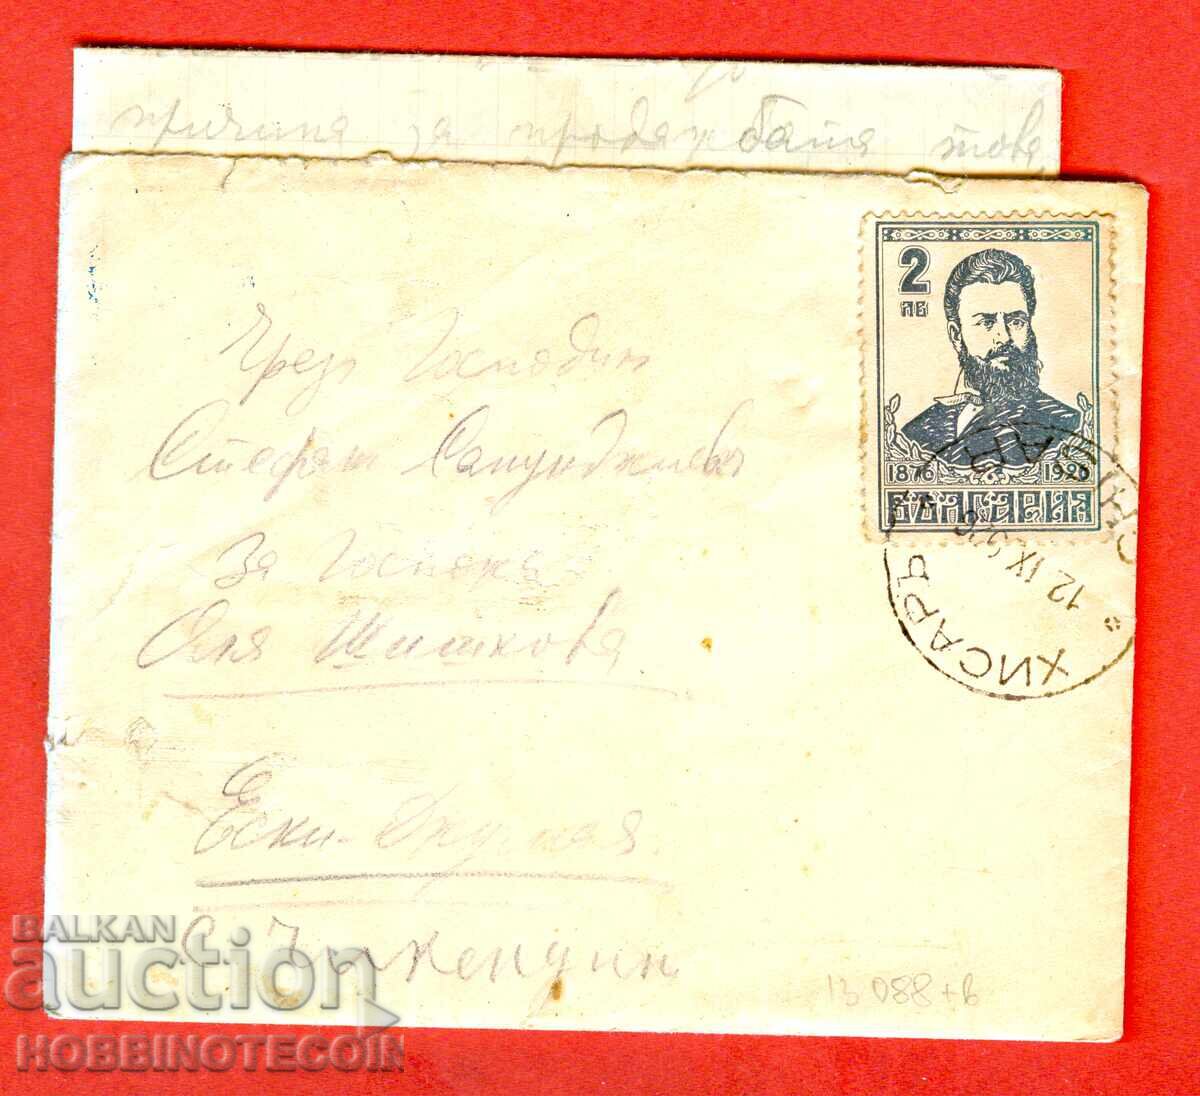 причина за продажбата това
2
лв
1876 1926
БЪЛГАРИЯ
ХИСАРЪ
12 IX 926
Чрезъ Господин
Стефан Сапунджиевъ
За Госпожа
Оля Шишкова
Ески-Джумая
С.
BALKAN
auction
HOBBINOTECOIN
13 088+в